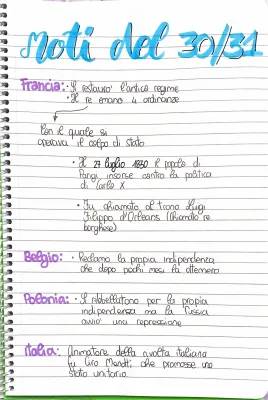 Moti del 30/31
Francia: • Si restaurò l'antico regime
• Il re emanò 4 ordinanze
Con il quale si
operava il colpo di stato
• Il 27 luglio 1830 il popolo di
Parigi insorse contro la politica
di Carlo X
• Fu chiamato al trono Luigi
Filippo d'Orleans (chiamato re
borghese)
Belgio: • Reclamò la propria indipendenza
che dopo pochi mesi la ottennero
Polonia: • Si ribellarono per la propia
indipendenza ma la Russia
avviò una repressione
Italia: Animatore della rivolta italiana
fu Ciro Menotti, che promosse uno
stato unitario